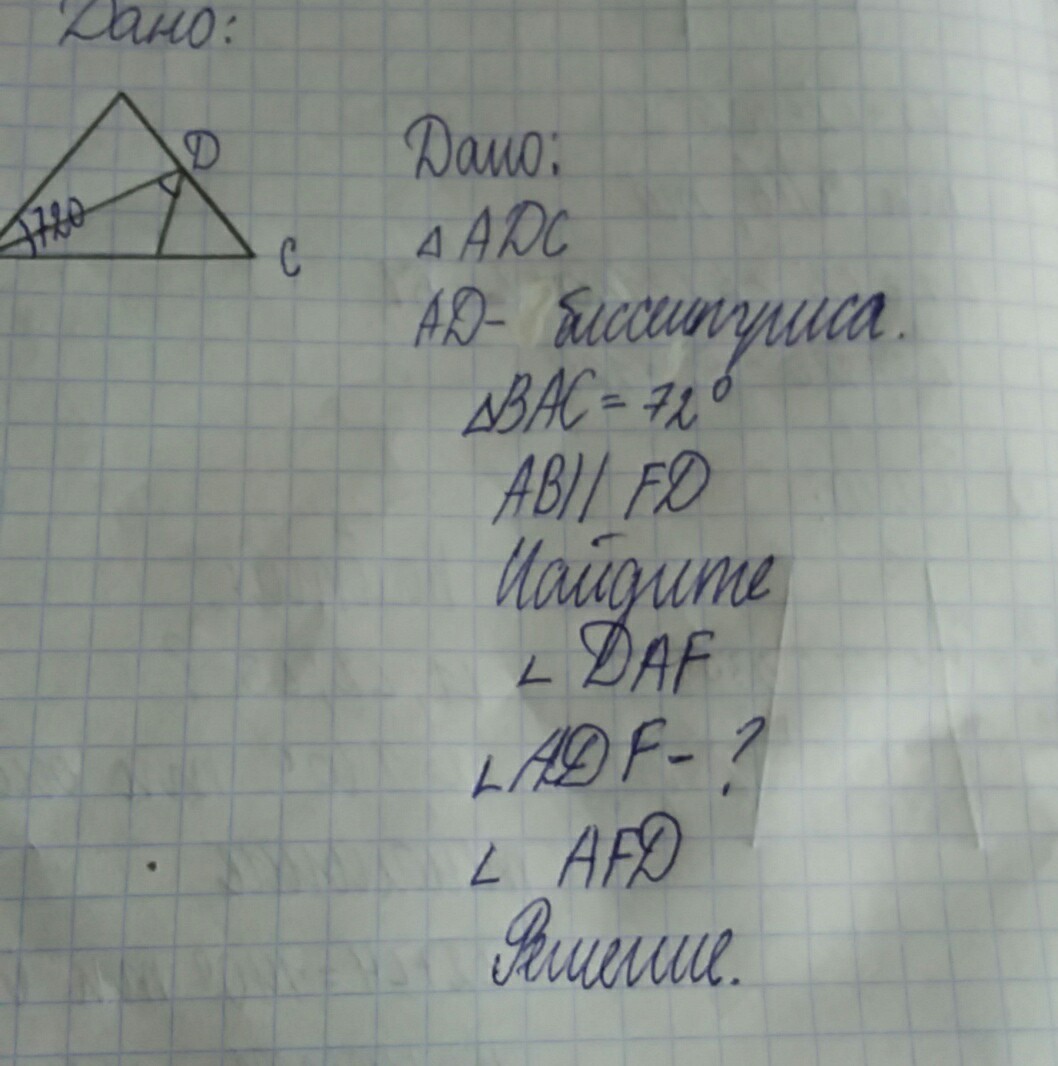 Дано:
D
720
C
Дано:
△ ADC
AD- биссектриса.
△BAC = 72°
AB || FD
Найдите
∠ DAF
∠ ADF - ?
∠ AFD
Решение.